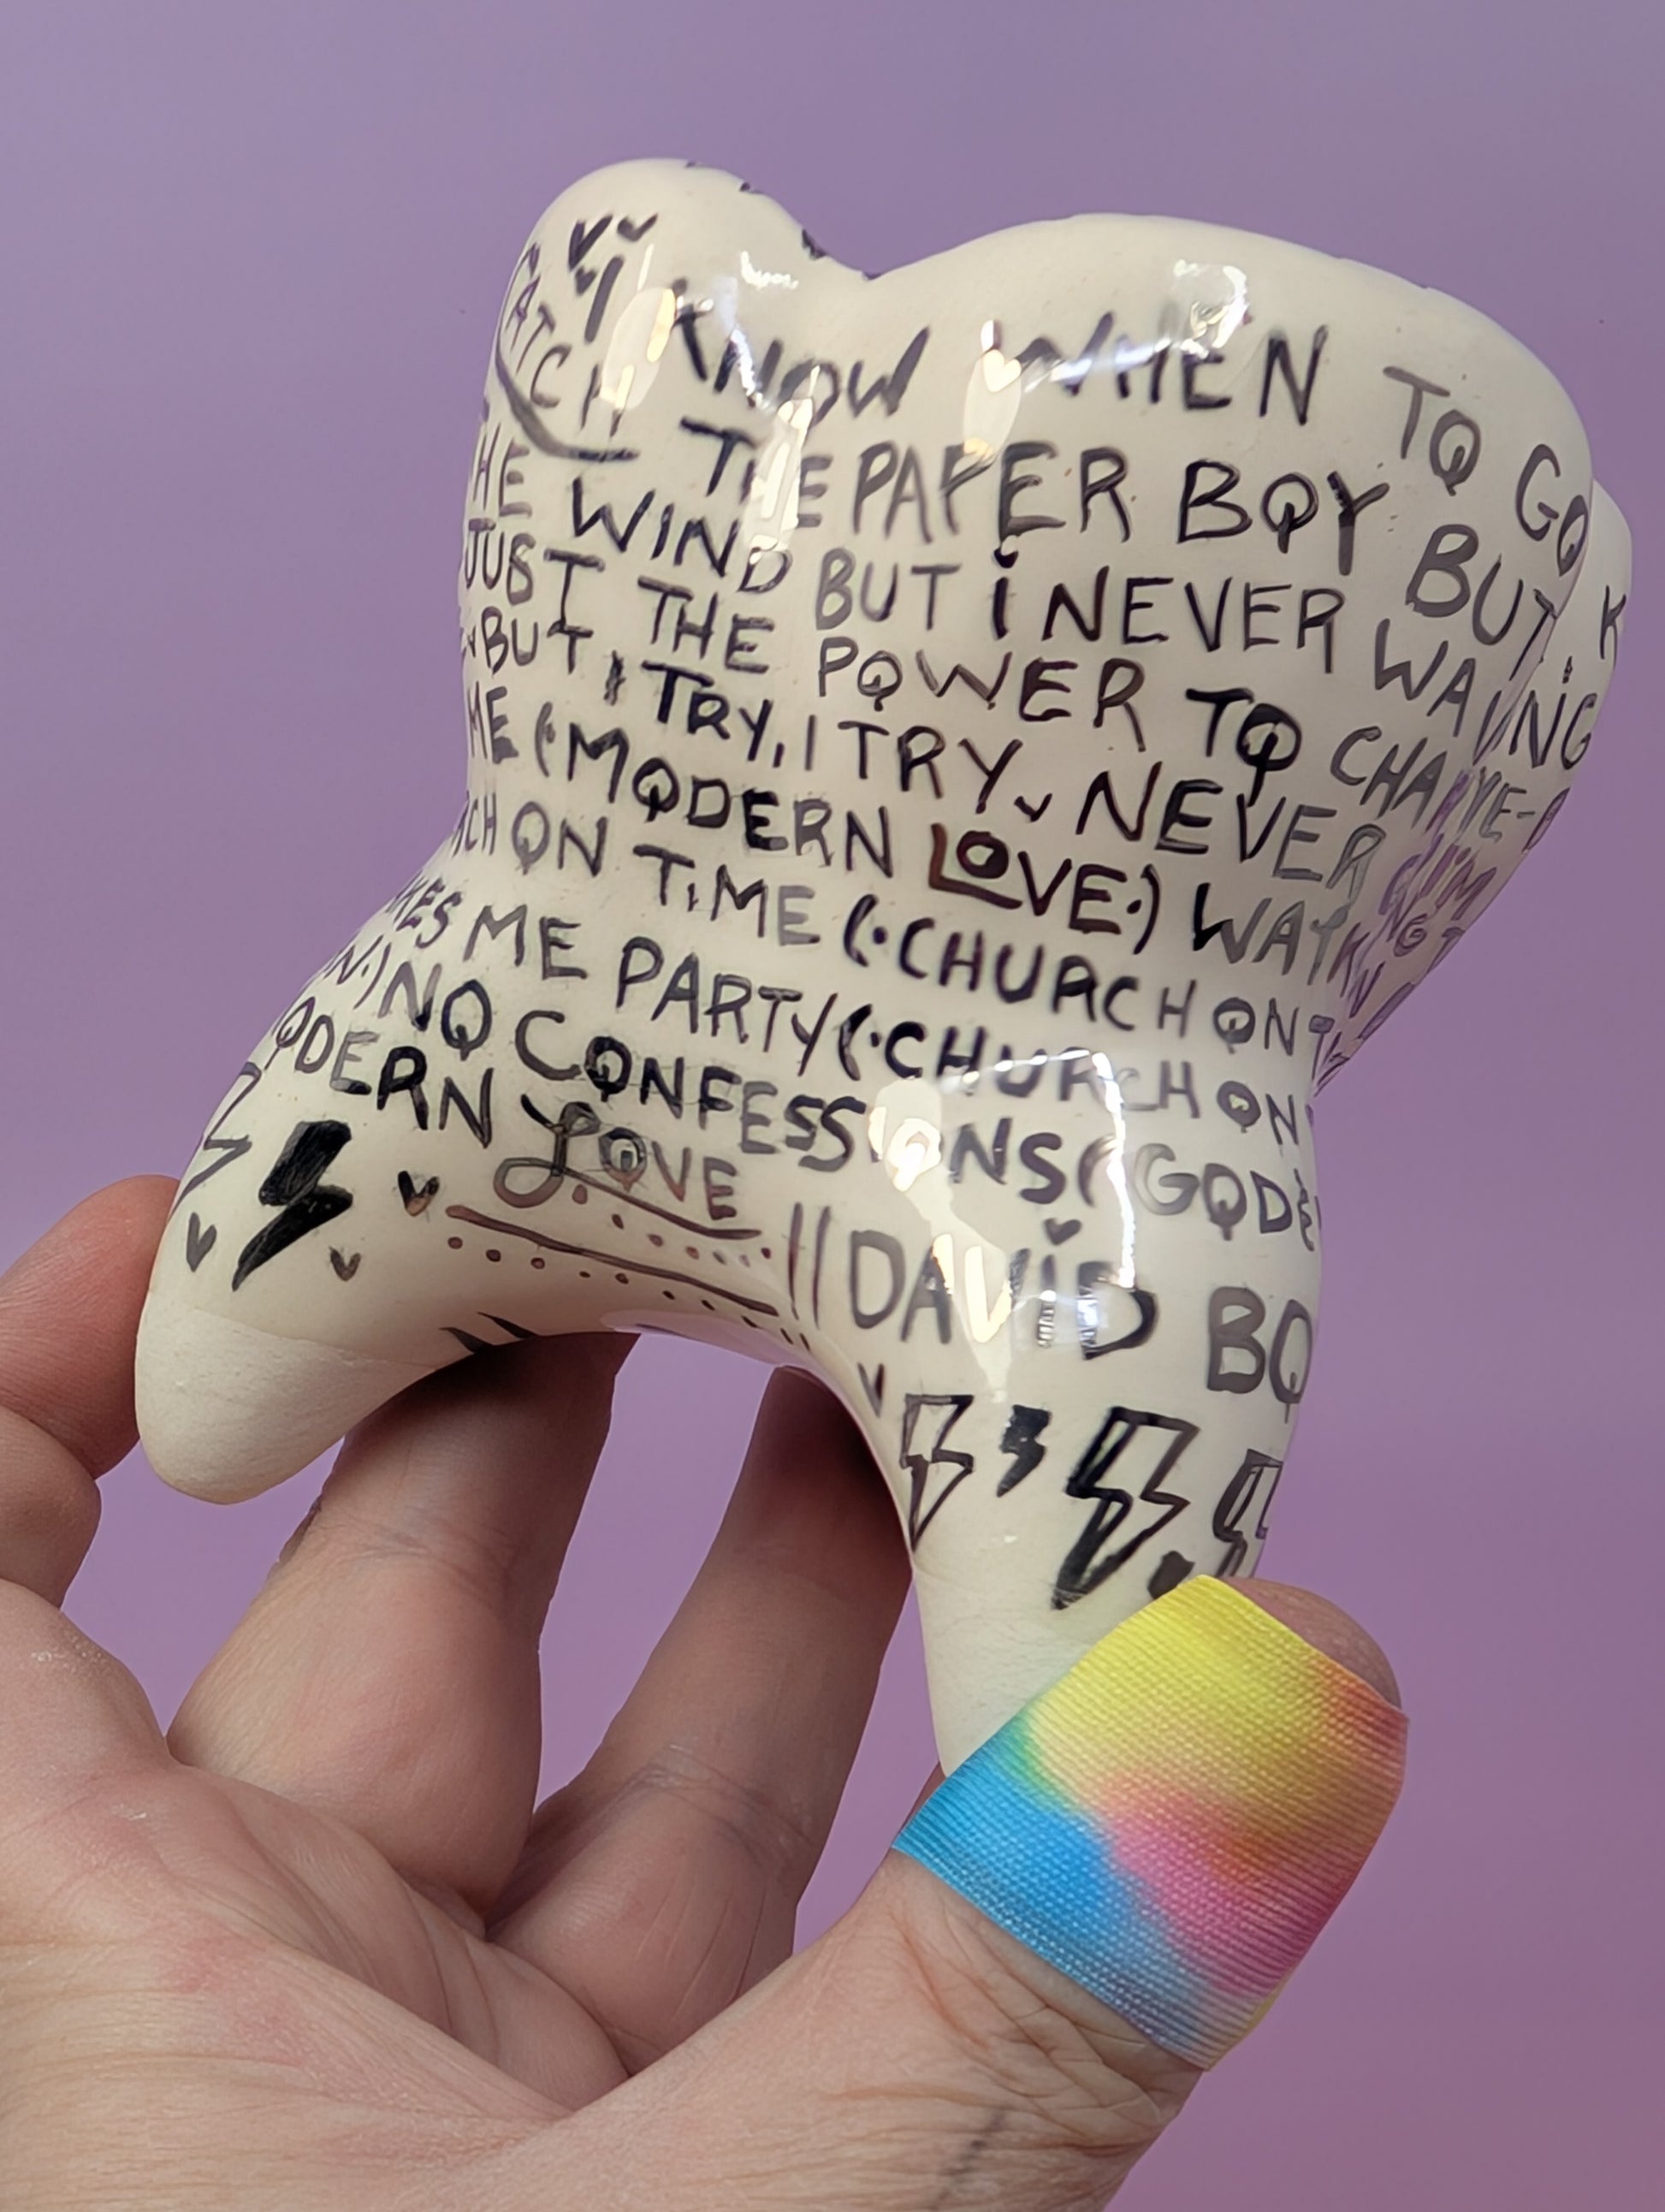 I KNOW WHEN TO GO
CATCH THE PAPER BOY BUT
THE WIND BUT i NEVER WAVING
JUST THE POWER TO CHA
BUT I TRY, I TRY NEVER
ME (MODERN LOVE) WALK
CH ON TIME (CHURCH ON T
KES ME PARTY (CHURCH ON
NO CONFESSIONS (GOD &
ODERN LOVE
// DAViD BO